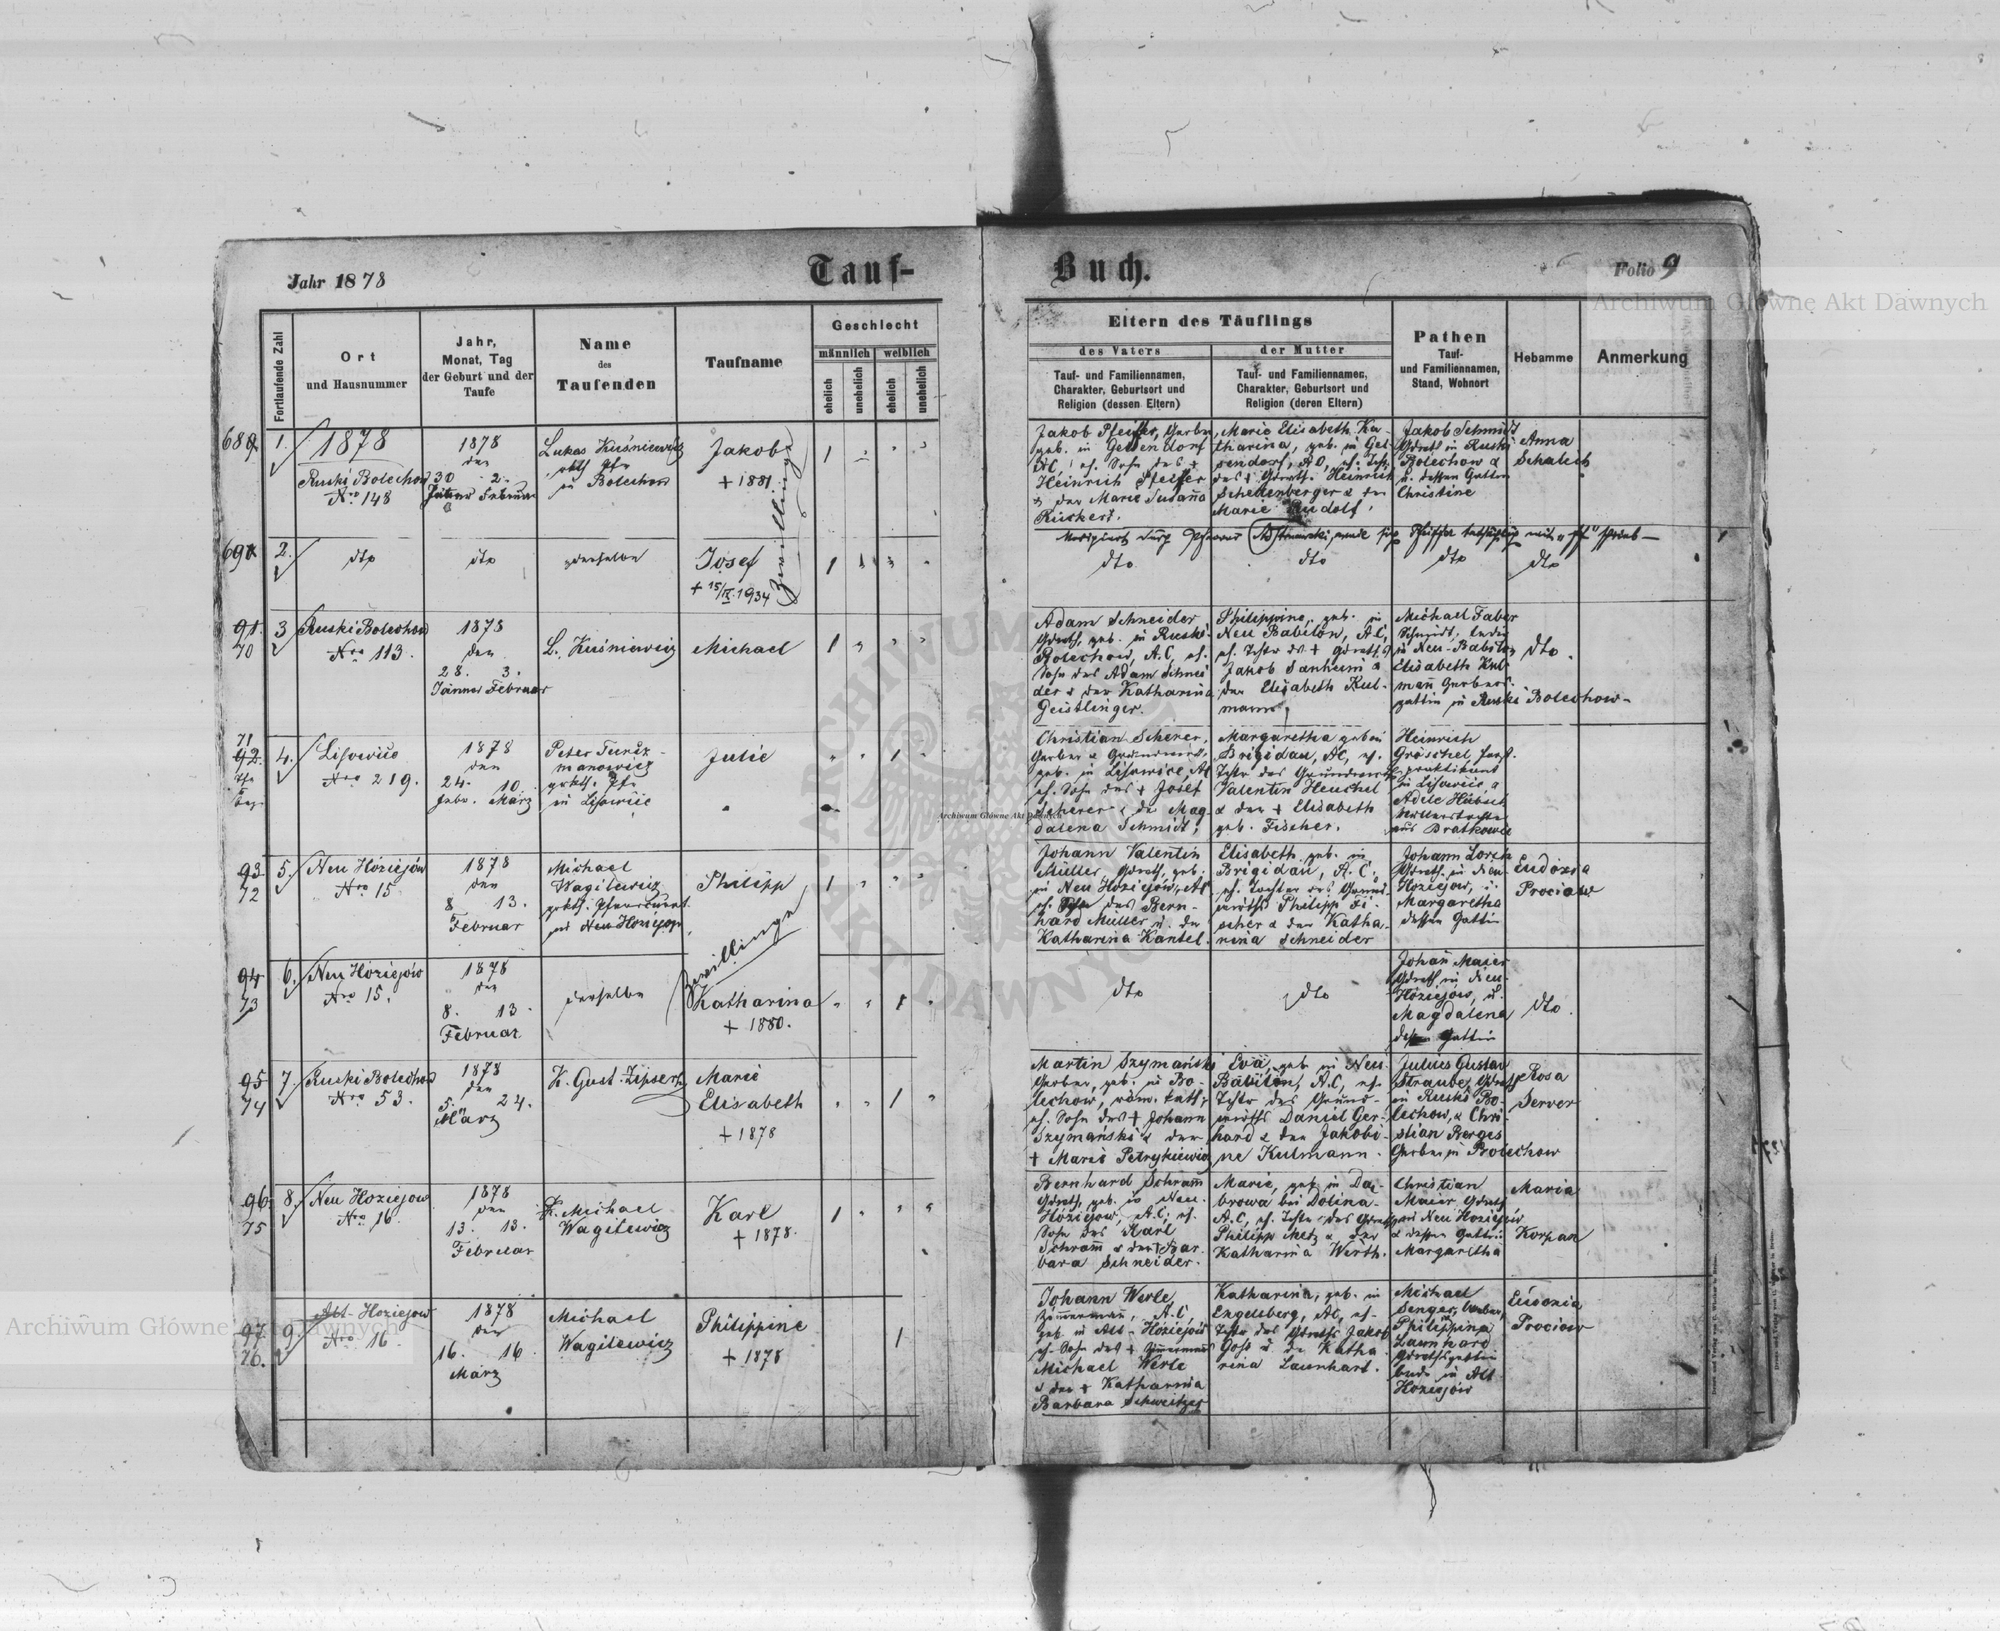 Jahr 1878
Tauf-
Buch.
Folio 9
Archiwum Główne Akt Dawnych
Fortlaufende Zahl
Ort
und Hausnummer
Jahr,
Monat, Tag
der Geburt und der
Taufe
Name
des
Taufenden
Taufname
Geschlecht
männlich
weiblich
ehelich
unehelich
ehelich
unehelich
Eltern des Täuflings
des Vaters
der Mutter
Tauf- und Familiennamen,
Charakter, Geburtsort und
Religion (dessen Eltern)
Tauf- und Familiennamen,
Charakter, Geburtsort und
Religion (deren Eltern)
Pathen
Tauf-
und Familiennamen,
Stand, Wohnort
Hebamme
Anmerkung
1.
1878
Ruski Bolechow
Nro 148
1878
den
30. 2.
Jänner Februar
Lukas Kuśniewicz
in Bolechow
Jakob
+ 1881
Zwillinge
1
Jakob Pfeiffer, Gerber,
geb. in Gelsendorf
AC, eh. Sohn des +
Heinrich Pfeiffer
& der Marie Susaña
Rückert.
Marie Elisabeth Ka-
tharina, geb. in Gel-
sendorf, AC, eh. Tocht.
des + Heinrich
Schellenberger & der
Marie Rudolf.
Jakob Schmidt
in Ruski
Bolechow &
u. dessen Gattin
Christine
Anna
Schalich
2.
dto
dto
derselbe
Josef
+ 15/IX. 1934
1
dto
dto
dto
dto
91.
70
3
Ruski Bolechow
Nro 113.
1878
den
28. 3.
Jänner Februar
L. Kuśniewicz
Michael
1
Adam Schneider
geb. in Ruski-
Bolechow, A.C, eh.
Sohn des Adam Schnei
der & der Katharina
Geistlinger.
Philippine, geb. in
Neu Babilon, AC,
eh. Tochter des +
Jakob Sanheim &
der Elisabeth Kul-
mann.
Michael Faber
Schmidt, ledig
in Neu-Babilon
Elisabeth Kul-
mañ Gerbers-
gattin in Ruski Bolechow-
dto.
71
92.
4.
Lisowice
Nro 219.
1878
den
24. 10.
Febr. März
Peter Turcz-
manowicz
in Lisowice
Julie
1
Christian Scherer,
Gerber & Grundwirth,
geb. in Lisowice, AC
eh. Sohn des + Josef
Scherer & der Mag-
dalena Schmidt;
Margaretha geb. in
Brigidau, AC, eh.
Tochter des Grundwirths
Valentin Heuchel
& der + Elisabeth
geb. Fischer.
Heinrich
Gröschel
praktikant
in Lisowice, &
Adele Hübsch
Müllerstochter
aus Bratkowce
Archiwum Główne Akt Dawnych
93.
72
5.
Neu Hoziejów
Nro 15
1878
den
8 13.
Februar
Michael
Wagilewicz
in Neu Hoziejow
Philipp
Zwillinge
1
Johann Valentin
Müller, geb.
in Neu Hoziejów, AC
eh. Sohn des Bern-
hard Müller u. der
Katharina Kantel.
Elisabeth geb. in
Brigidau, A.C.,
eh. Tochter des Grund-
wirths Philipp Fi-
scher & der Katha-
rina Schneider
Johann Lorch
in Neu
Hoziejow, u.
Margaretha
dessen Gattin
Eudoxia
Prociow
94
73
6.
Neu Hoziejow
Nro 15.
1878
den
8. 13.
Februar
derselbe
Katharina
+ 1880.
1
dto
dto
Johañ Maier
in Neu-
Hoziejow, u.
Magdalena
dessen Gattin
dto.
95
74
7.
Ruski Bolechow
Nro 53.
1878
den
5. 24.
März
K. Gust. Zipser
Marie
Elisabeth
+ 1878
1
Martin Szymański
Gerber, geb. in Bo-
lechow, röm. kath.,
eh. Sohn des + Johann
Szymański & der
+ Marie Petrykiewicz
Eva, geb. in Neu
Babilon, A.C, eh.
Tochter des Grund-
wirths Daniel Ger-
hard & der Jakobi-
ne Kulmann.
Julius Gustav
Straube,
in Ruski Bo-
lechow, & Chri-
stian Berges
Gerber in Bolechow
Rosa
Server
96.
75
8.
Neu Hoziejow
Nro 16.
1878
den
13. 13.
Februar
Michael
Wagilewicz
Karl
+ 1878.
1
Bernhard Schram̄
geb. in Neu-
Hoziejow, A.C, eh.
Sohn des Karl
Schram̄ & der + Bar-
bara Schneider.
Marie, geb. in Da-
browa bei Dolina-
A.C, eh. Tochter des
Philipp Metz & der
Katharina Werth.
Christian
Maier
in Neu Hoziejów
& dessen Gattin
Margaretha
Maria
Korpan
97.
76.
9.
Alt-Hoziejow
Nro 16.
1878
den
16. 16.
März
Michael
Wagilewicz
Philippine
+ 1878
1
Johann Werle
Zimmermann, A.C,
geb. in Alt-Hoziejów
eh. Sohn des + Zimmermanns
Michael Werle
& der + Katharina
Barbara Schweitzer
Katharina, geb. in
Engelsberg, AC, eh-
Tochter des Jakob
Gohs u. der Katha
rina Launhart.
Michael
Senger, Weber,
Philippine
Launhard
beide in Alt
Hoziejow
Eudoxia
Prociow
Archiwum Główne Akt Dawnych
ARCHIWUM GŁÓWNE AKT DAWNYCH